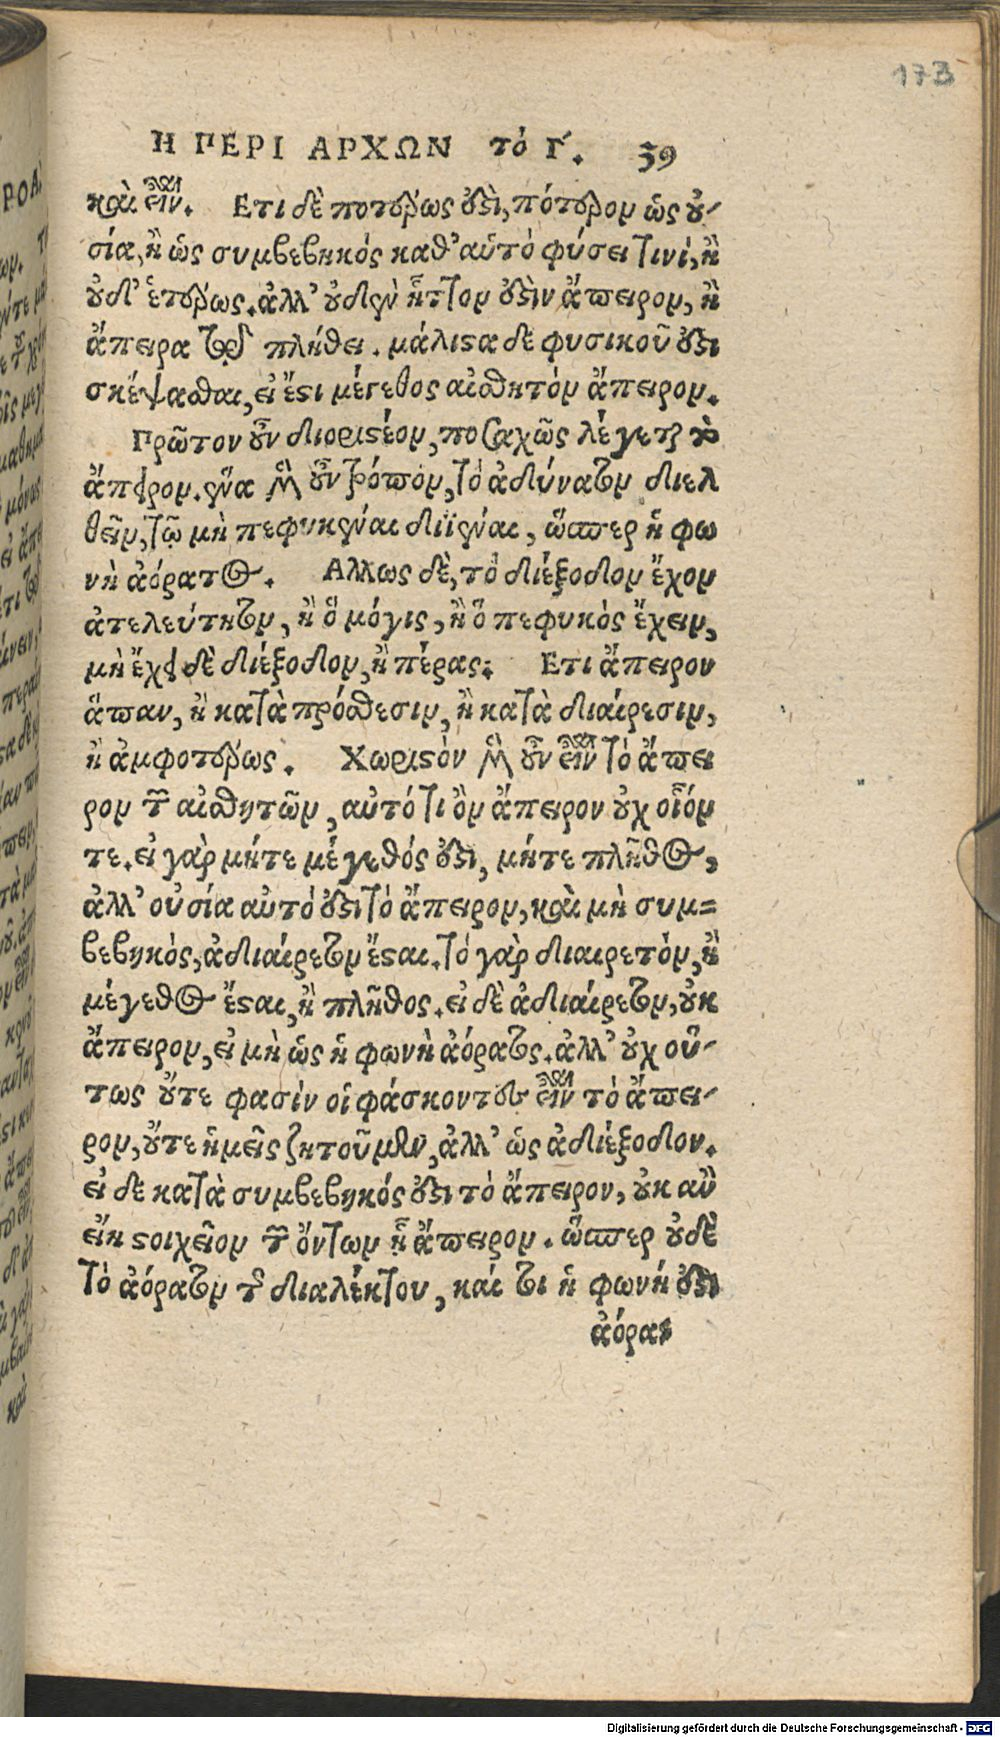 173
Η ΠΕΡΙ ΑΡΧΩΝ τὸ Γ´. 59
καὶ εἶναι. Ετι δὲ ποτέρως ἐστὶ, πότερον ὡς οὐ-
σία, ἢ ὡς συμβεβηκὸς καθ' αὑτὸ φύσει τινὶ, ἢ
οὐδ' ἑτέρως. ἀλλ' οὐδὲν ἧττον ἐστὶν ἄπειρον, ἢ
ἄπειρα τῷ πλήθει. μάλιστα δὲ φυσικοῦ ἐστι
σκέψασθαι, εἰ ἔστι μέγεθος αἰσθητὸν ἄπειρον.
Πρῶτον οὖν διοριστέον, ποσαχῶς λέγεται τὸ
ἄπειρον. ἕνα μὲν οὖν τρόπον, τὸ ἀδύνατον διελ
θεῖν, τῷ μὴ πεφυκέναι διϊέναι, ὥσπερ ἡ φω
νὴ ἀόρατος. Αλλως δὲ, τὸ διέξοδον ἔχον
ἀτελεύτητον, ἢ ὃ μόγις, ἢ ὃ πεφυκὸς ἔχειν,
μὴ ἔχει δὲ διέξοδον, ἢ πέρας. Ετι ἄπειρον
ἅπαν, ἢ κατὰ πρόσθεσιν, ἢ κατὰ διαίρεσιν,
ἢ ἀμφοτέρως. Χωριστὸν μὲν οὖν εἶναι τὸ ἄπει
ρον τῶν αἰσθητῶν, αὐτό τι ὂν ἄπειρον οὐχ οἷόν
τε. εἰ γὰρ μήτε μέγεθός ἐστι, μήτε πλῆθος,
ἀλλ' οὐσία αὐτό ἐστι τὸ ἄπειρον, καὶ μὴ συμ=
βεβηκὸς, ἀδιαίρετον ἔσται. τὸ γὰρ διαιρετὸν, ἢ
μέγεθος ἔσται, ἢ πλῆθος. εἰ δὲ ἀδιαίρετον, οὐκ
ἄπειρον, εἰ μὴ ὡς ἡ φωνὴ ἀόρατος. ἀλλ' οὐχ οὕ-
τως οὔτε φασὶν οἱ φάσκοντες εἶναι τὸ ἄπει-
ρον, οὔτε ἡμεῖς ζητοῦμεν, ἀλλ' ὡς ἀδιέξοδον.
εἰ δε κατὰ συμβεβηκός ἐστι τὸ ἄπειρον, οὐκ ἂν
εἴη στοιχεῖον τῶν ὄντων ᾗ ἄπειρον. ὥσπερ οὐδὲ
τὸ ἀόρατον τῆς διαλέκτου, καί τοι ἡ φωνή ἐστι
ἀόρα
Digitalisierung gefördert durch die Deutsche Forschungsgemeinschaft - DFG